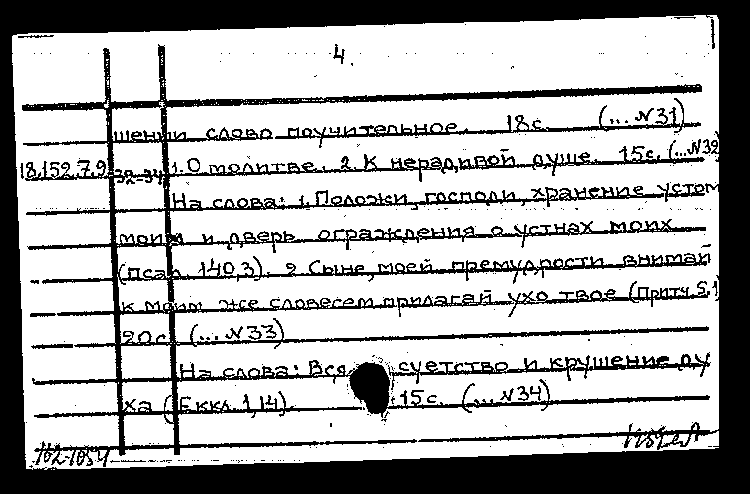 4.
шении слово поучительное. 18с. (...N31)
18.152.7.9 32-34 1. О молитве. 2. К нерадивой душе. 15с. (...N32
На слова: 1. Положи, господи, хранение устом
моим и дверь ограждения о устнах моих
(псал. 140,3). 2 Сыне, моей премудрости внимай
к моим же словесем прилагай ухо твое (Притч. 5.1)
20с. (...N33)
На слова: Вся суетство и крушение ду
ха (Еккл. 1,14). 15с. (...N34)